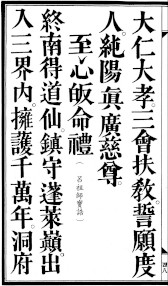 大仁大孝三會扶教。誓願度
人純陽眞廣慈尊。
至心皈命禮（呂祖師寶誥）
終南得道仙。鎮守蓬萊顛出
入三界內。擁護千萬年。洞府